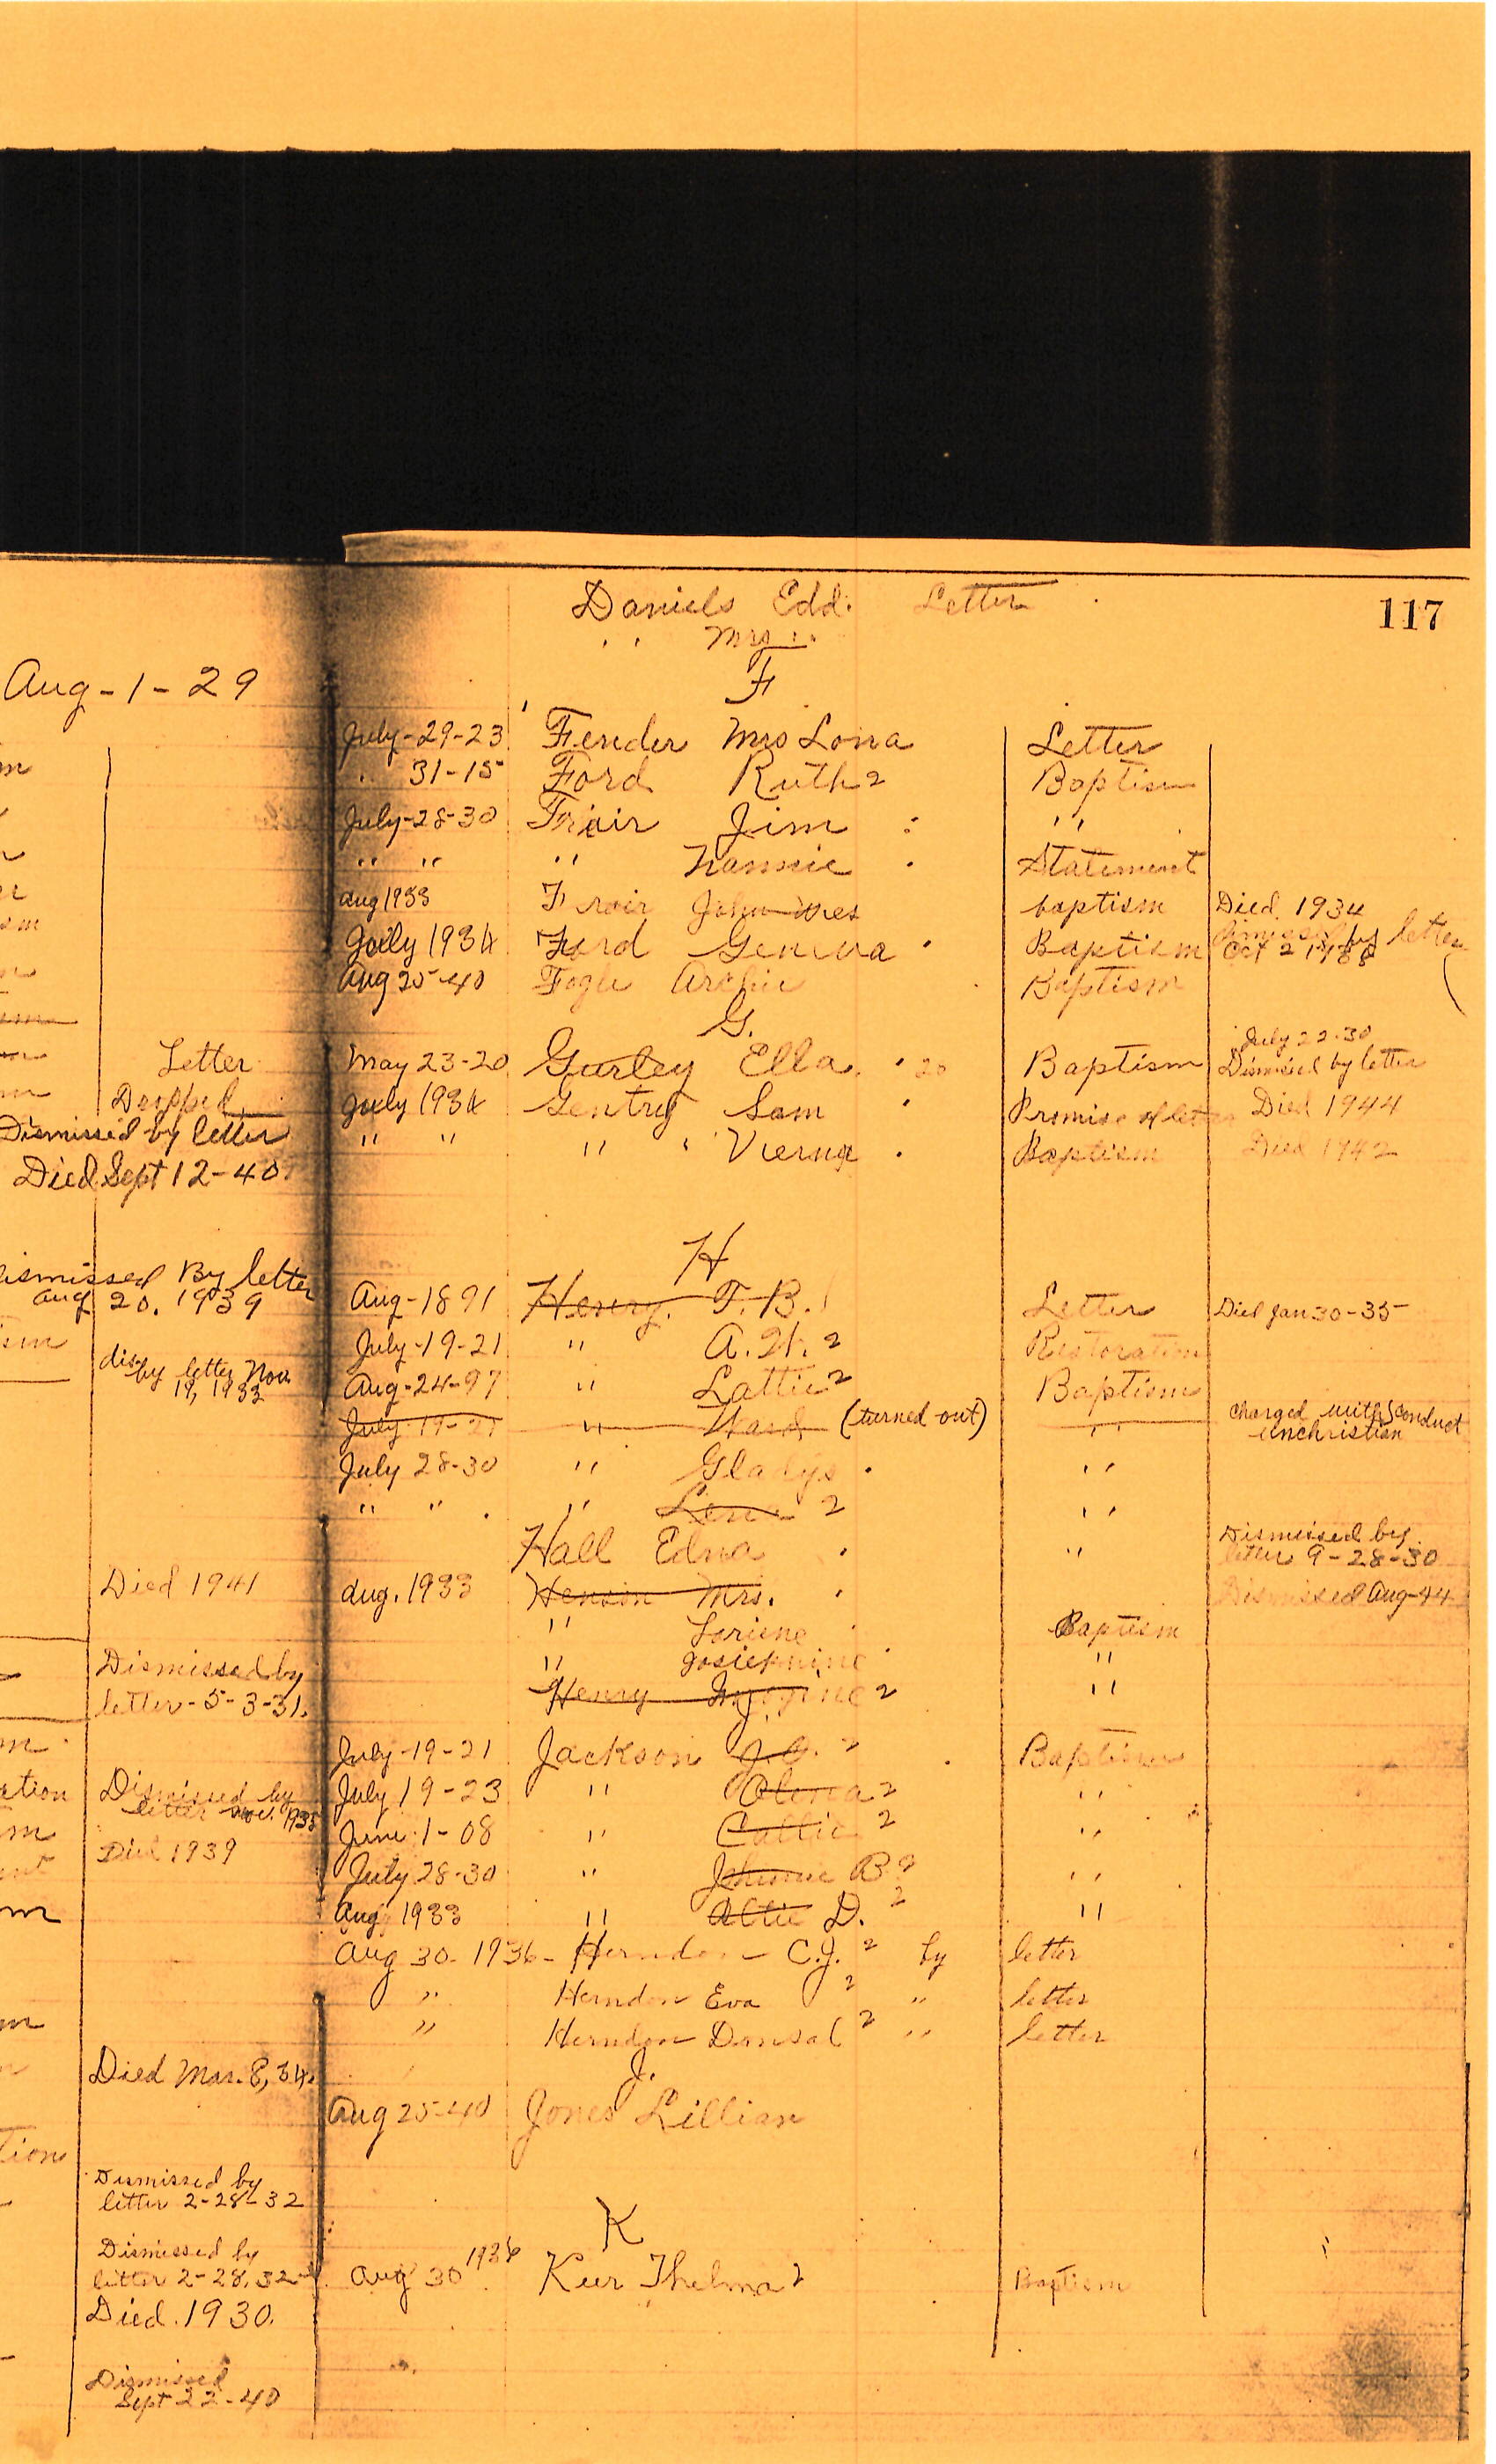 Daniels Edd. Letter
117
" Mrs "
F
Aug-1-29
July-29-23 Fender Mrs Lona Letter
" 31-15 Ford Ruth 2 Baptism
July-28-30 Frair Jim " "
" " " Nannie Statement
Aug 1933 Froir John baptism Died 1934
July 1934 Ford Geneva Baptism by letter Oct 2
Aug 25-40 Fogle Archie Baptism
G.
July 22-30
Letter May 23-20 Gurley Ella 20 Baptism Dismissed by letter
Dropped July 1934 Gentry Sam Promise of letter Died 1944
Dismissed by letter " " " " Vierna Baptism Died 1942
Died Sept 12-40.
H
ismissed By letter
Aug 20, 1939 Aug-1891 Henry T. B. Letter Died Jan 30-35
July-19-21 " A. W. 2 Restoration
dis by letter Nov. 19, 1933 Aug-24-97 " Lattie 2 Baptism
July-19-21 " Ward (turned out) " charged with unchristian conduct
July 28-30 " Gladys " "
" " " Lena 2 " "
Hall Edna " Dismissed by letter 9-28-30
Died 1941 Aug. 1933 Henson Mrs. Dismissed Aug-44
" Loriene Baptism
Dismissed by " Josiephine "
letter-5-3-31. Henry 2 "
J.
July-19-21 Jackson J. 2 Baptism
ation Dismissed by letter Nov. 1935 July 19-23 " Olena 2 "
June-1-08 " Callie 2 "
Died 1939 July 28-30 " B. 2 "
Aug 1933 " Altie D. 2 "
Aug 30. 1936- Herndon C.J. 2 by letter
" Herndon Eva 2 " letter
" Herndon Donsal 2 " letter
J.
Died Mar. 8, 34.
Aug 25-40 Jones Lillian
Dismissed by
letter 2-28-32
K
Dismissed by
letter 2-28-32 Aug 30 1936 Keer Thelma 2 Baptism
Died. 1930.
Dismissed
Sept 22-40